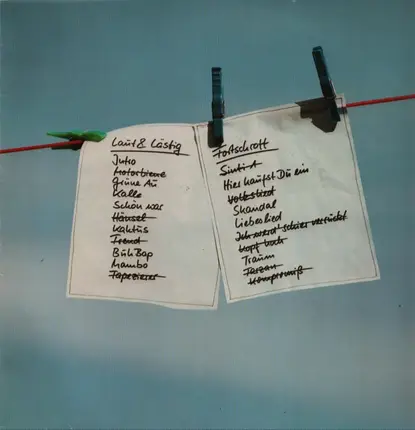 Laut & Lästig
Intro
Motorbiene
Grüne Au
Kalle
Schön war
Hänsel
Kaktus
Trend
BühBap
Mambo
Tapezierer
Fortschrott
Sinti A
Hier kaufst Du ein
Volkslied
Skandal
Liebeslied
Ich werd' schier verrückt
Kopf hoch
Traum
Tarzan
Kompromiß